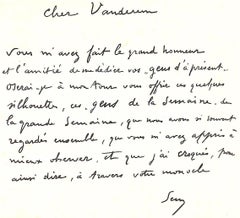 Cher Vanderem
Vous m'avez fait le grand honneur
et l'amitié de me dédier vos gens d'à présent.
Oserai-je à mon tour vous offrir ces quelques
silhouettes, ces gens de la Semaine, de
la grande Semaine, que nous avons si souvent
regardés ensemble, que vous m'avez appris à
mieux observer, et que j'ai croqués, pour
ainsi dire, à travers votre monocle
Sem